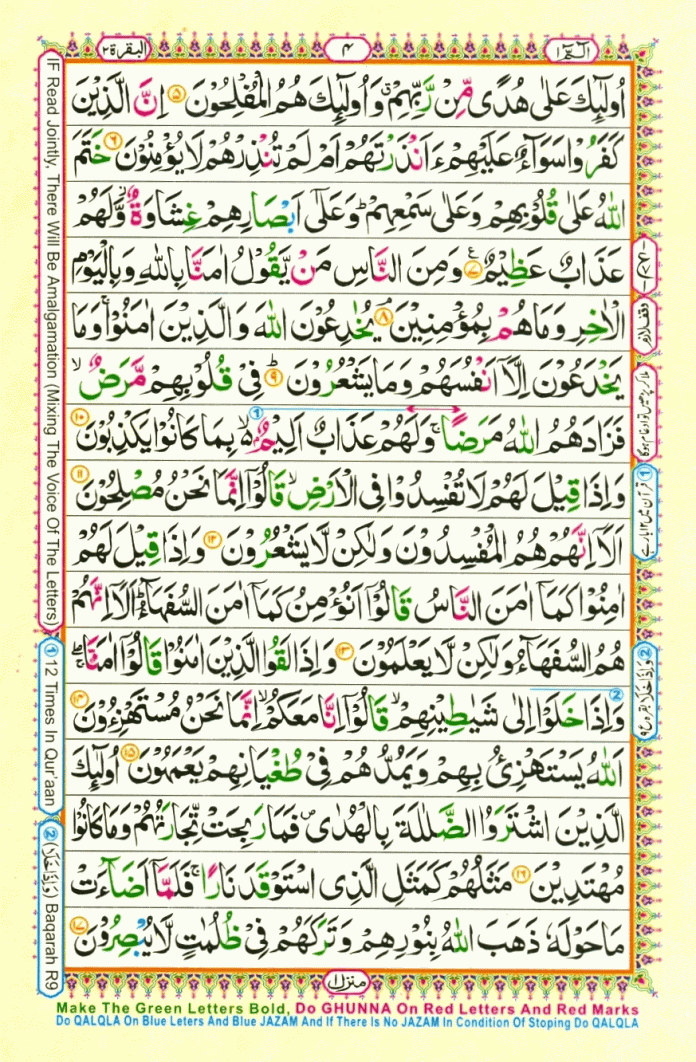 البقرة ٢
٤
الٓمّٓ ١
اُولٰٓئِكَ عَلٰى هُدًى مِّنْ رَّبِّهِمْ ۙ وَاُولٰٓئِكَ هُمُ الْمُفْلِحُوْنَ ۵ اِنَّ الَّذِيْنَ
كَفَرُوْا سَوَآءٌ عَلَيْهِمْ ءَاَنْذَرْتَهُمْ اَمْ لَمْ تُنْذِرْهُمْ لَا يُؤْمِنُوْنَ ۶ خَتَمَ
اللّٰهُ عَلٰى قُلُوْبِهِمْ وَعَلٰى سَمْعِهِمْ ؕ وَعَلٰٓى اَبْصَارِهِمْ غِشَاوَةٌ ۙ وَّلَهُمْ
عَذَابٌ عَظِيْمٌ ۷ وَمِنَ النَّاسِ مَنْ يَّقُوْلُ اٰمَنَّا بِاللّٰهِ وَبِالْيَوْمِ
الْاٰخِرِ وَمَا هُمْ بِمُؤْمِنِيْنَ ۘ ۸ يُخٰدِعُوْنَ اللّٰهَ وَالَّذِيْنَ اٰمَنُوْا ۚ وَمَا
يَخْدَعُوْنَ اِلَّآ اَنْفُسَهُمْ وَمَا يَشْعُرُوْنَ ؕ ۹ فِىْ قُلُوْبِهِمْ مَّرَضٌ ۙ
فَزَادَهُمُ اللّٰهُ مَرَضًا ۚ وَلَهُمْ عَذَابٌ اَلِيْمٌۢ ۙ بِمَا كَانُوْا يَكْذِبُوْنَ ۱۰
وَاِذَا قِيْلَ لَهُمْ لَا تُفْسِدُوْا فِى الْاَرْضِ ۙ قَالُوْٓا اِنَّمَا نَحْنُ مُصْلِحُوْنَ ۱۱
اَلَآ اِنَّهُمْ هُمُ الْمُفْسِدُوْنَ وَلٰكِنْ لَّا يَشْعُرُوْنَ ۱۲ وَاِذَا قِيْلَ لَهُمْ
اٰمِنُوْا كَمَآ اٰمَنَ النَّاسُ قَالُوْٓا اَنُؤْمِنُ كَمَآ اٰمَنَ السُّفَهَآءُ ؕ اَلَآ اِنَّهُمْ
هُمُ السُّفَهَآءُ وَلٰكِنْ لَّا يَعْلَمُوْنَ ۱۳ وَاِذَا لَقُوا الَّذِيْنَ اٰمَنُوْا قَالُوْٓا اٰمَنَّا ۖۚ
وَاِذَا خَلَوْا اِلٰى شَيٰطِيْنِهِمْ ۙ قَالُوْٓا اِنَّا مَعَكُمْ ۙ اِنَّمَا نَحْنُ مُسْتَهْزِءُوْنَ ۱۴
اَللّٰهُ يَسْتَهْزِئُ بِهِمْ وَيَمُدُّهُمْ فِىْ طُغْيَانِهِمْ يَعْمَهُوْنَ ۱۵ اُولٰٓئِكَ
الَّذِيْنَ اشْتَرَوُا الضَّلٰلَةَ بِالْهُدٰى ۪ فَمَا رَبِحَتْ تِّجَارَتُهُمْ وَمَا كَانُوْا
مُهْتَدِيْنَ ۱۶ مَثَلُهُمْ كَمَثَلِ الَّذِى اسْتَوْقَدَ نَارًا ۚ فَلَمَّآ اَضَآءَتْ
مَا حَوْلَهٗ ذَهَبَ اللّٰهُ بِنُوْرِهِمْ وَتَرَكَهُمْ فِىْ ظُلُمٰتٍ لَّا يُبْصِرُوْنَ ۱۷
منزل ١
IF Read Jointly, There Will Be Amalgamation (Mixing The Voice Of The Letters)
① 12 Times In Qur'aan
② (وَاِذَاخَلَا) Baqarah R9
وقف لازم
ملا کر پڑھیں تو ادغام ہوگا
① قرآن میں ۱۲ بار ہے
② وَاِذَاخَلَا بقرہ ع۹
Make The Green Letters Bold, Do GHUNNA On Red Letters And Red Marks
Do QALQLA On Blue Leters And Blue JAZAM And If There Is No JAZAM In Condition Of Stoping Do QALQLA